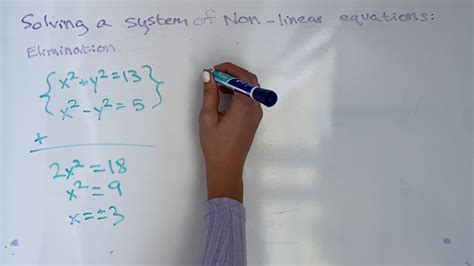 Solving a system of Non-linear equations:
Elimination
{ x² + y² = 13 }
{ x² - y² = 5 }
+
2x² = 18
x² = 9
x = ±3